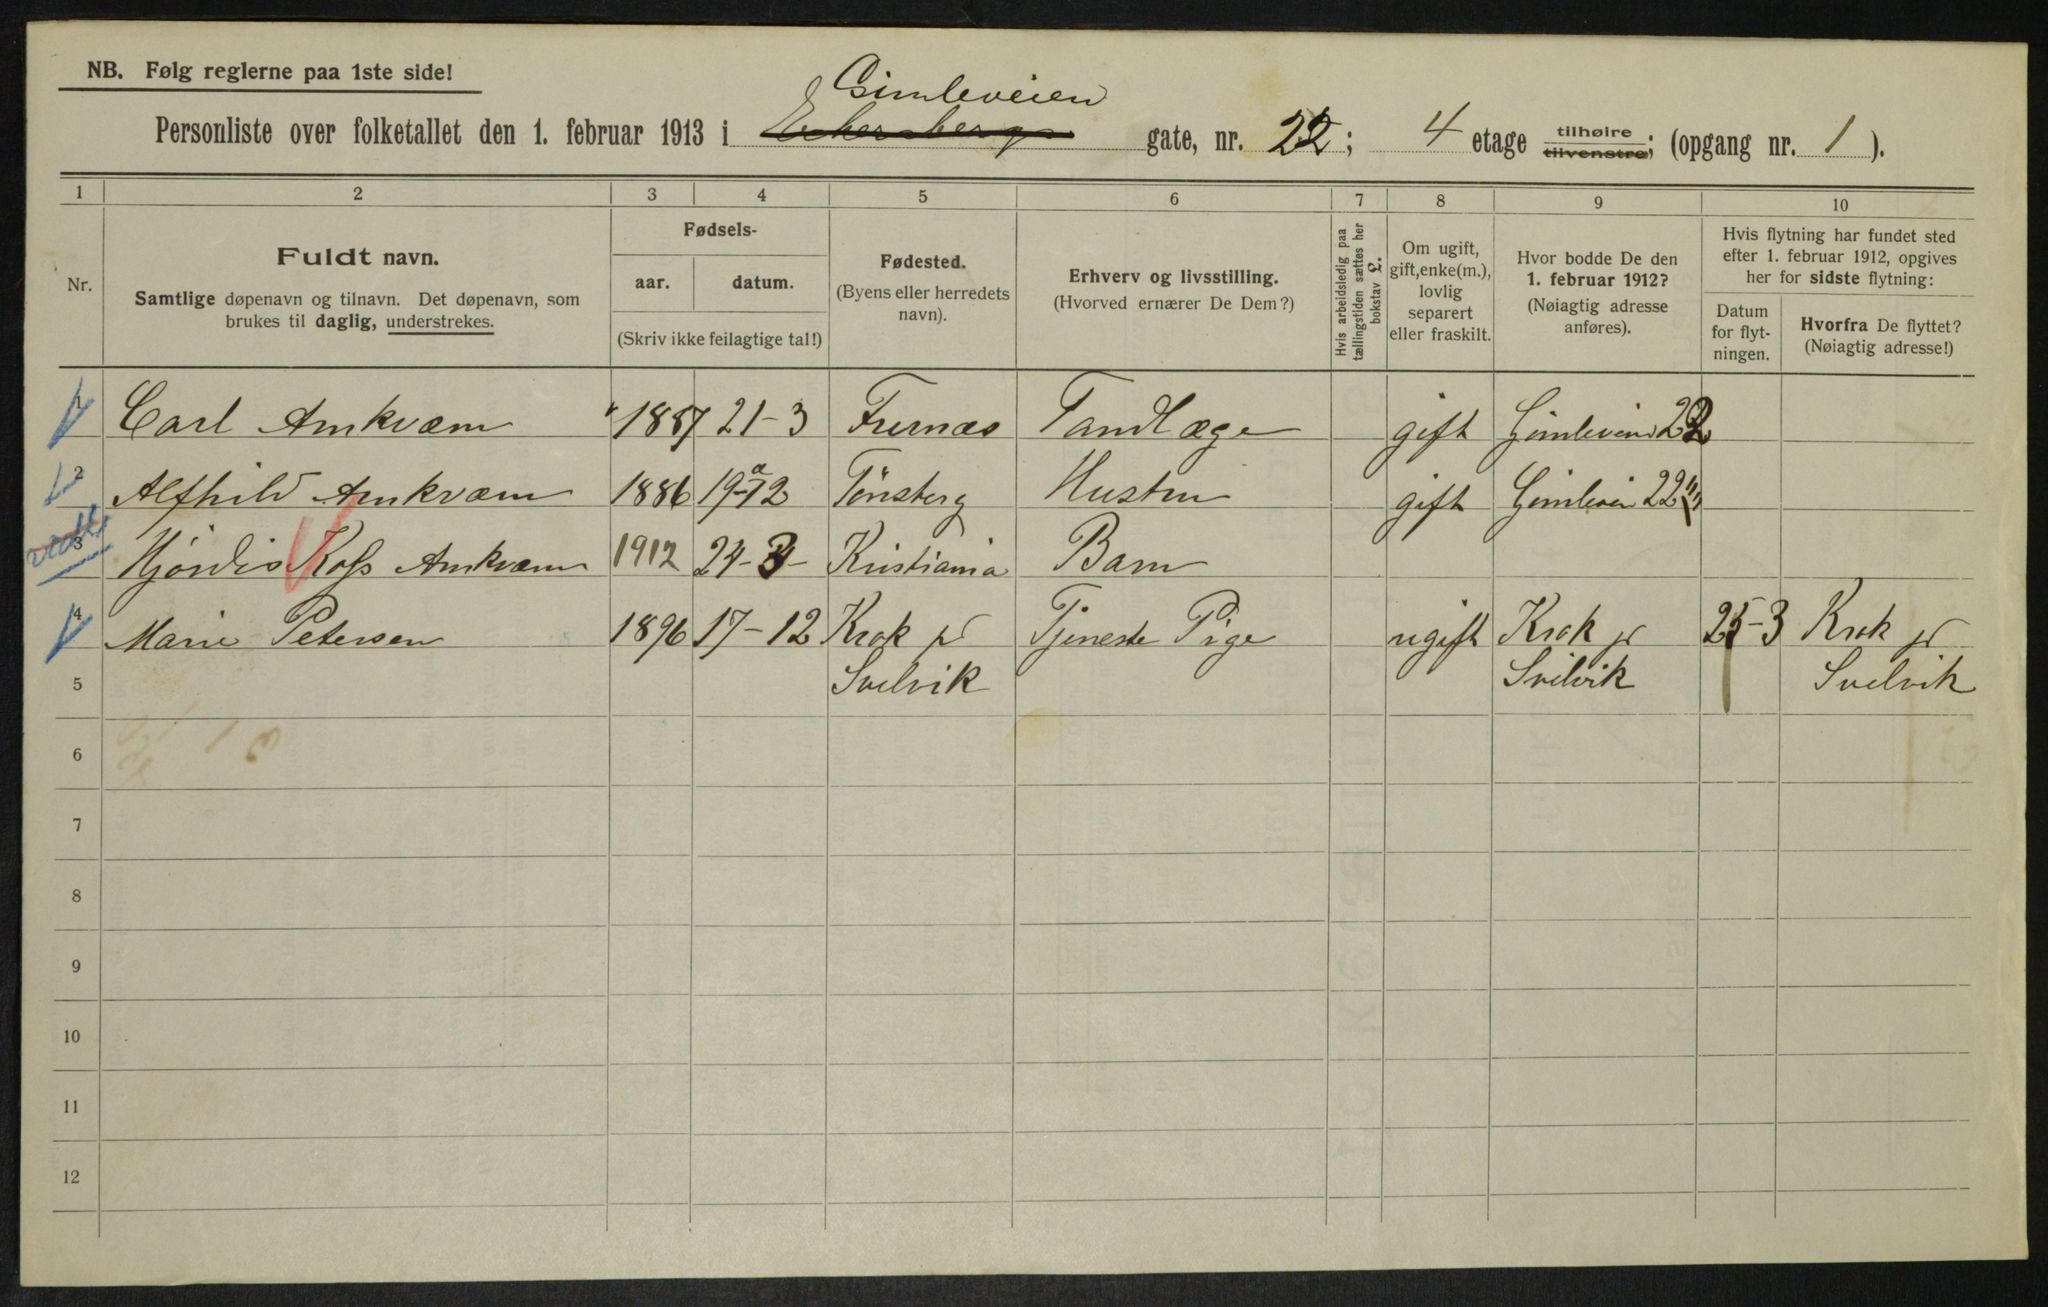 NB. Følg reglerne paa 1ste side!
Gimleveien
Personliste over folketallet den 1. februar 1913 i Eckersbergs gate, nr. 22; 4 etage tilhøire tilvenstre; (opgang nr. 1).
1 2 3 4 5 6 7 8 9 10
Nr.
Fuldt navn.
Samtlige døpenavn og tilnavn. Det døpenavn, som
brukes til daglig, understrekes.
Fødsels-
aar. datum.
(Skriv ikke feilagtige tal!)
Fødested.
(Byens eller herredets
navn).
Erhverv og livsstilling.
(Hvorved ernærer De Dem?)
Hvis arbeidsledig paa
tællingstiden sættes her
bokstav l.
Om ugift,
gift, enke(m.),
lovlig
separert
eller fraskilt.
Hvor bodde De den
1. februar 1912?
(Nøiagtig adresse
anføres).
Hvis flytning har fundet sted
efter 1. februar 1912, opgives
her for sidste flytning:
Datum
for flyt-
ningen.
Hvorfra De flyttet?
(Nøiagtig adresse!)
1 Carl Amkvæm 1887 21-3 Furnæs Tandlæge gift Gimleveien 22
2 Alfhild Amkvæm 1886 19-12 Tönsberg Hustru gift Gimleveien 22
3 Hjördis Koss Amkvæm 1912 24-3- Kristiania Barn
4 Marie Petersen 1896 17-12 Krok pr Tjeneste Pige ugift Krok pr 25-3 Krok pr
5 Svelvik Svelvik Svelvik
6
7
8
9
10
11
12